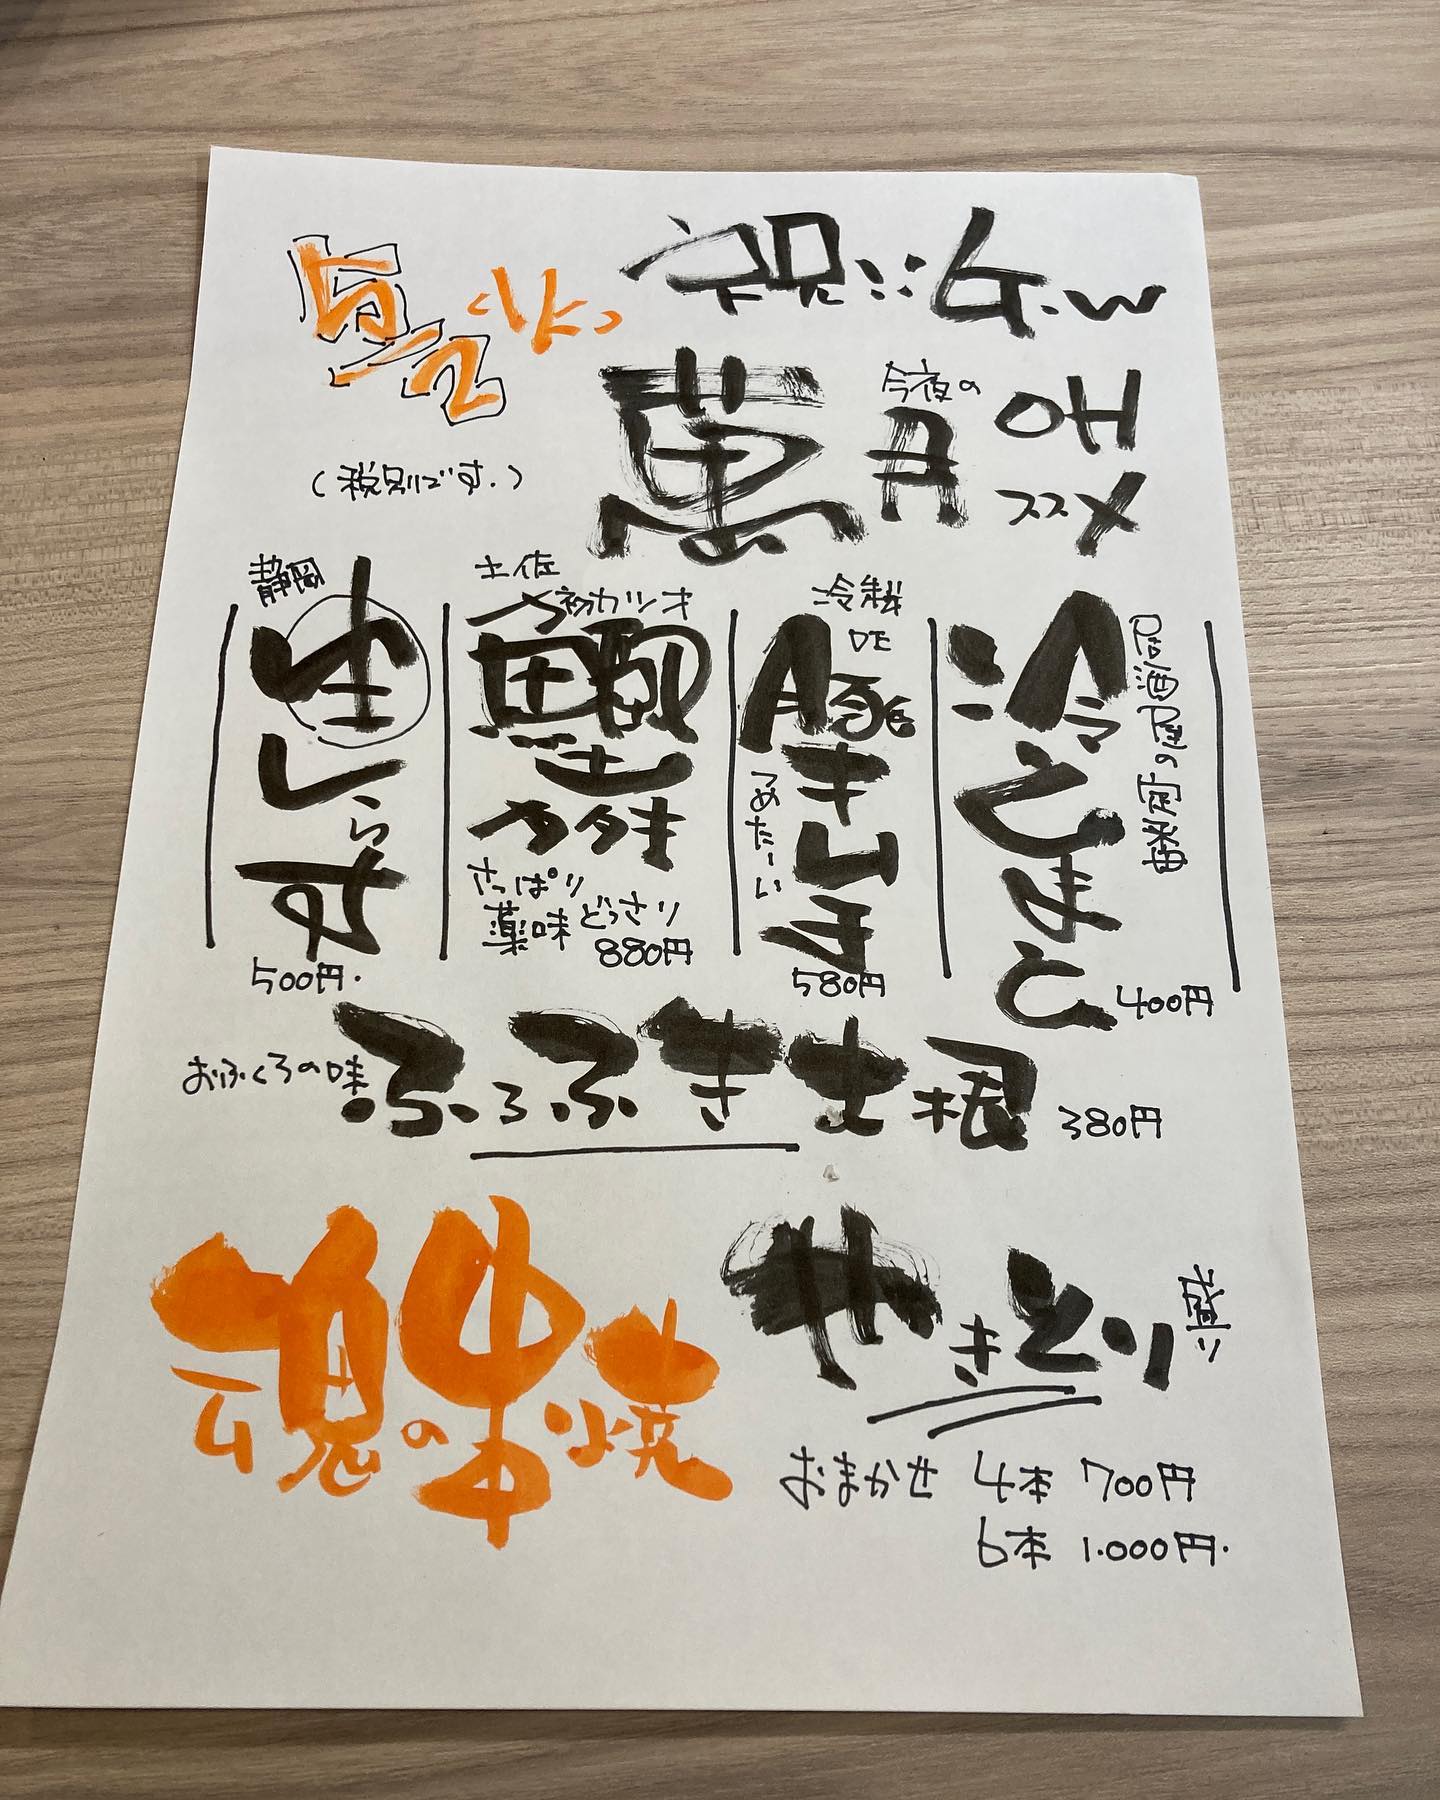 5/2 <水>
祝::G.W
薫
今夜の
OHススメ
(税別です.)
居酒屋の定番
冷とまと
400円
冷製
DE
豚キムチ
つめたーい
580円
土佐
初カツオ
鰹タタキ
さっぱり
薬味どっさり
880円
静岡
生しらす
500円.
おふくろの味 ふろふき大根 380円
魂の串焼
やきとり盛り
おまかせ 4本 700円
6本 1.000円.